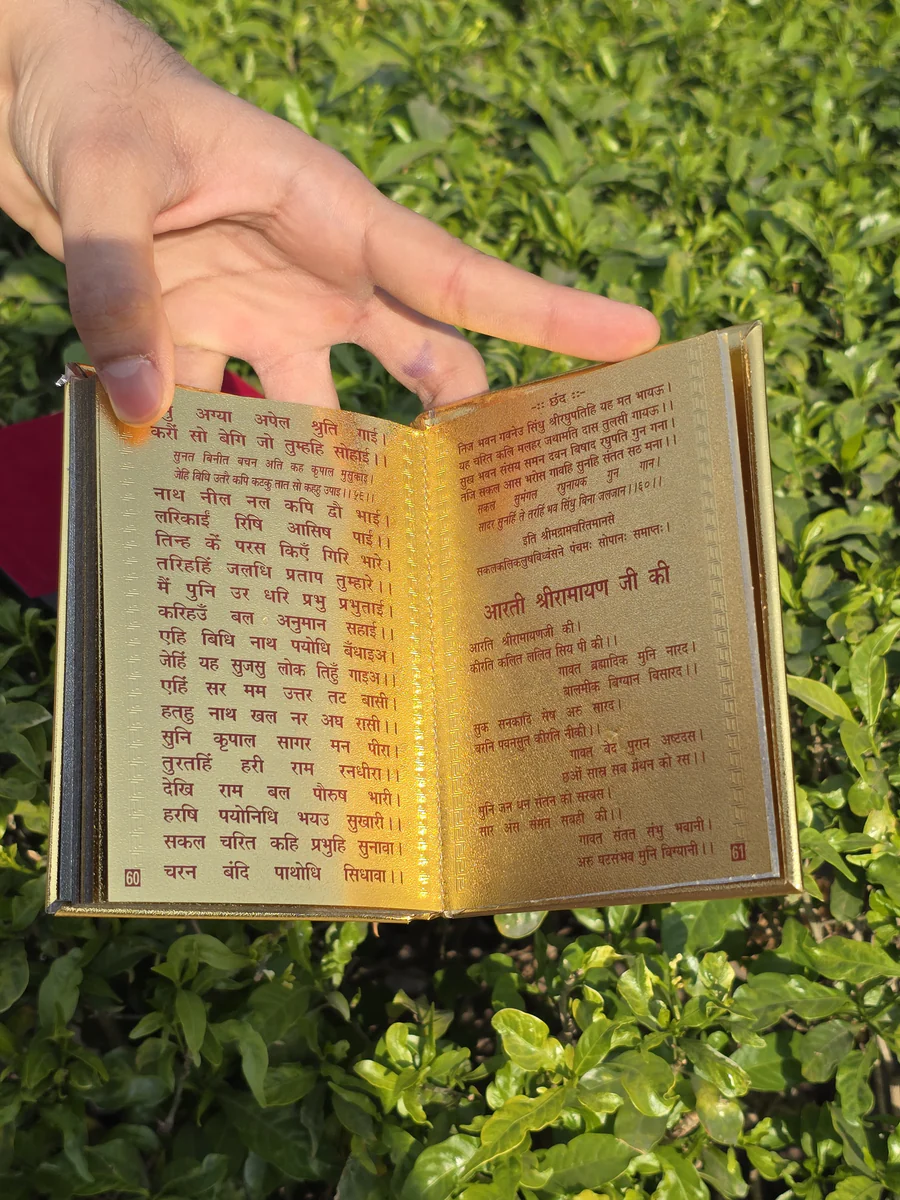 अग्या अपेल श्रुति गाई।
करौं सो बेगि जो तुम्हहि सोहाई।।
सुनत बिनीत बचन अति कह कृपाल मुसुकाइ।
जेहि बिधि उतरै कपि कटकु तात सो कहहु उपाइ।।५९।।
नाथ नील नल कपि द्वौ भाई।
लरिकाईं रिषि आसिष पाई।।
तिन्ह कें परस किएँ गिरि भारे।
तरिहहिं जलधि प्रताप तुम्हारे।।
मैं पुनि उर धरि प्रभु प्रभुताई।
करिहउँ बल अनुमान सहाई।।
एहि बिधि नाथ पयोधि बँधाइअ।
जेहिं यह सुजसु लोक तिहुँ गाइअ।।
एहिं सर मम उत्तर तट बासी।
हतहु नाथ खल नर अघ रासी।।
सुनि कृपाल सागर मन पीरा।
तुरतहिं हरी राम रनधीरा।।
देखि राम बल पौरुष भारी।
हरषि पयोनिधि भयउ सुखारी।।
सकल चरित कहि प्रभुहि सुनावा।
चरन बंदि पाथोधि सिधावा।।
60
-:: छंद ::-
निज भवन गवनेउ सिंधु श्रीरघुपतिहि यह मत भायऊ।
यह चरित कलि मलहर जथामति दास तुलसी गायऊ।।
सुख भवन संसय समन दवन बिषाद रघुपति गुन गना।
तजि सकल आस भरोस गावहि सुनहि संतत सठ मना।।
सकल सुमंगल रघुनायक गुन गान।
सादर सुनहिं ते तरहिं भव सिंधु बिना जलजान।।६०।।
इति श्रीमद्रामचरितमानसे
सकलकलिकलुषविध्वंसने पंचमः सोपानः समाप्तः।
आरती श्रीरामायण जी की
आरति श्रीरामायणजी की।
कीरति कलित ललित सिय पी की।।
गावत ब्रह्मादिक मुनि नारद।
बालमीक बिग्यान बिसारद।।
सुक सनकादि सेष अरु सारद।
बरनि पवनसुत कीरति नीकी।।
गावत बेद पुरान अष्टदस।
छओं सास्त्र सब ग्रंथन को रस।।
मुनि जन धन संतन को सरबस।
सार अंस संमत सबही की।।
गावत संतत संभु भवानी।
अरु घटसंभव मुनि बिग्यानी।।
61